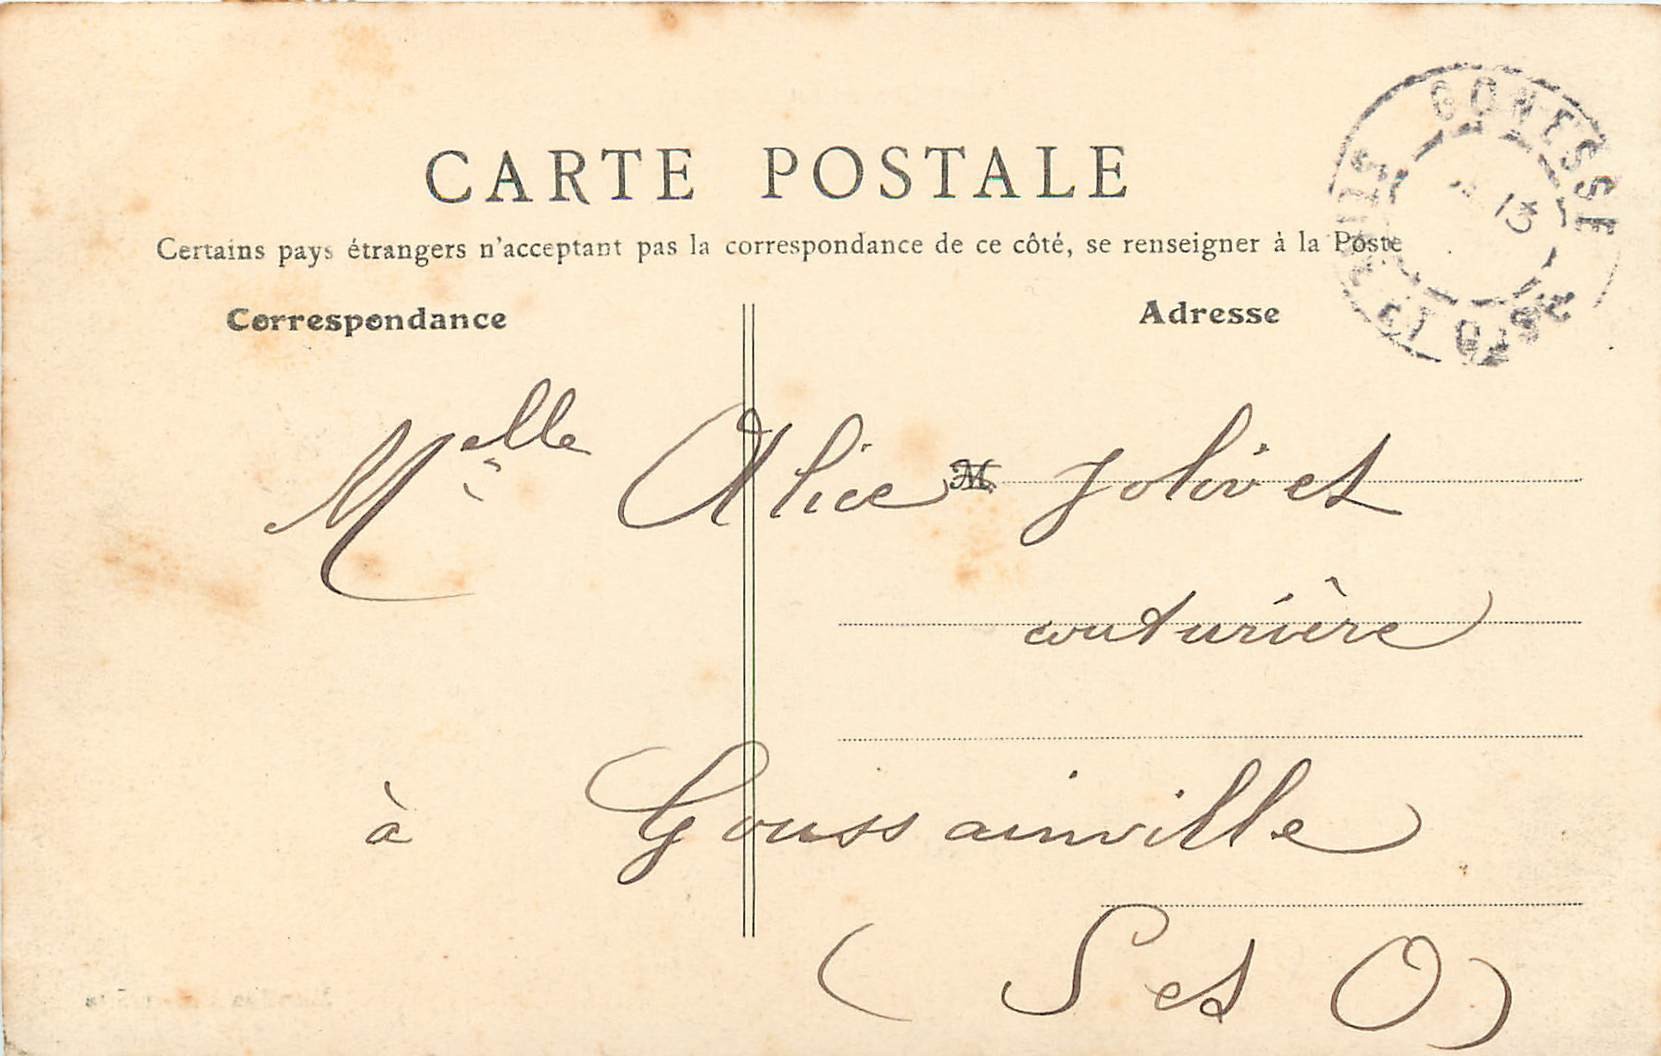 CARTE POSTALE
GONESSE
SEINE ET OISE
Certains pays étrangers n'acceptant pas la correspondance de ce côté, se renseigner à la Poste
Correspondance
Adresse
Melle Alice M Jolivet
couturière
à Goussainville
(S et O)